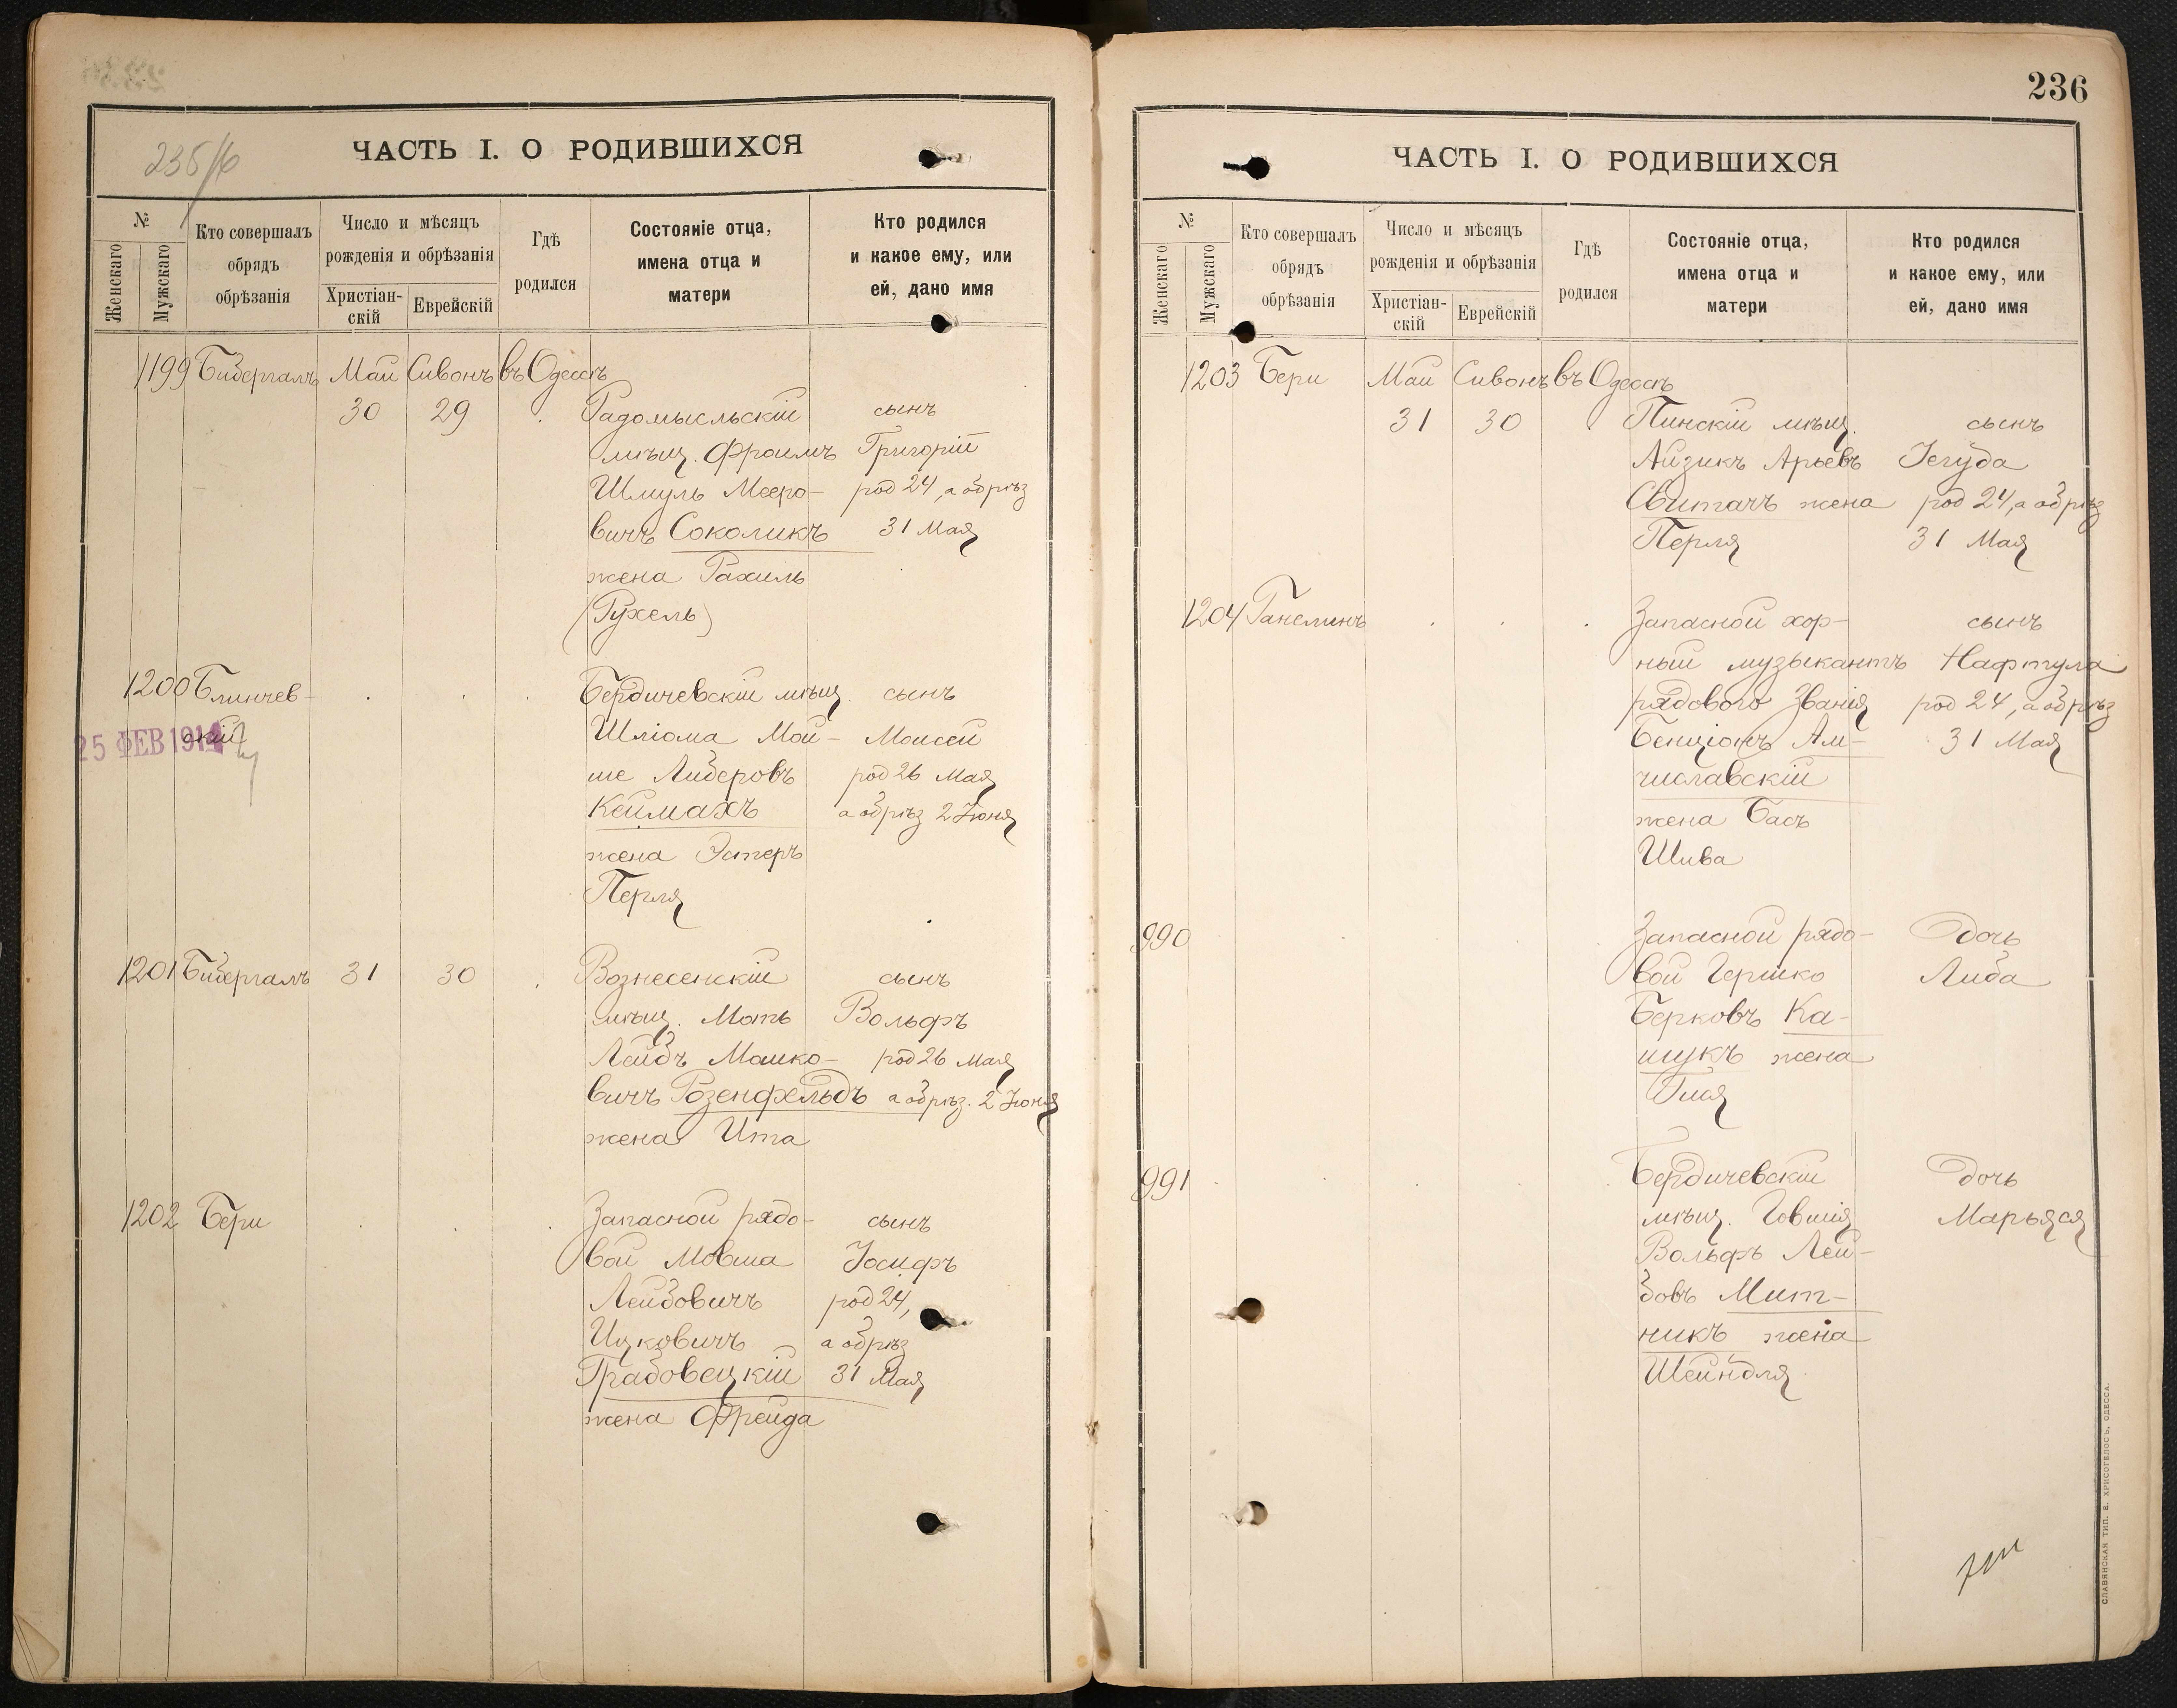 ЧАСТЬ I. О РОДИВШИХСЯ
№
Женскаго
Мужскаго
Кто совершалъ
обрядъ
обрѣзанія
Число и мѣсяцъ
рожденія и обрѣзанія
Христіан-
скій
Еврейскій
Гдѣ
родился
Состояніе отца,
имена отца и
матери
Кто родился
и какое ему, или
ей, дано имя
1199 Бибергалъ Май Сивонъ въ Одессѣ
30 29 Радомысльскій сынъ
мѣщ. Фроимъ Григорій
Шмуль Мееро- род 24, а обрѣз
вичъ Соколикъ 31 Мая
жена Рахиль
(Рухель)
1200 Блинчев- Бердичевскій мѣщ. сынъ
скій Шліома Мой- Моисей
25 ФЕВ 1914
ше Лидеровъ род 26 Мая
Кеймахъ а обрѣз 2 Іюня
жена Эстеръ
Перля
1201 Бибергалъ 31 30 Вознесенскій сынъ
мѣщ. Моть Вольфъ
Лейбъ Мошко- род 26 Мая
вичъ Розенфельдъ а обрѣз. 2 Іюня
жена Ита
1202 Бери Запасной рядо- сынъ
вой Мовша Іосифъ
Лейбовичъ род 24,
Ицковичъ а обрѣз
Грабовецкій 31 Мая
жена Фрейда
236
ЧАСТЬ I. О РОДИВШИХСЯ
№
Женскаго
Мужскаго
Кто совершалъ
обрядъ
обрѣзанія
Число и мѣсяцъ
рожденія и обрѣзанія
Христіан-
скій
Еврейскій
Гдѣ
родился
Состояніе отца,
имена отца и
матери
Кто родился
и какое ему, или
ей, дано имя
1203 Бери Май Сивонъ въ Одессѣ
31 30 Пинскій мѣщ. сынъ
Айзикъ Арьевъ Іегуда
Свитачъ жена род 24, а обрѣз
Перля 31 Мая
1204 Ганелинъ Запасной хор- сынъ
ный музыкантъ Нафтула
рядового званія род 24, а обрѣз
Бенціонъ Ам- 31 Мая
числавскій
жена Бася
Шива
990 Запасной рядо- дочь
вой Гершко Либа
Берковъ Ка-
шукъ жена
991 Бердичевскій дочь
мѣщ. Говшія Марьяся
Вольфъ Лей-
бовъ Мит-
никъ жена
Шейндля
СЛАВЯНСКАЯ ТИП. Е. ХРИСОГЕЛОСЪ, ОДЕССА.